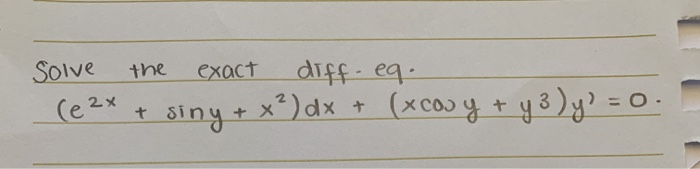 Solve the exact diff. eq.
(e^2x + siny + x²)dx + (xcosy + y³)y' = 0.